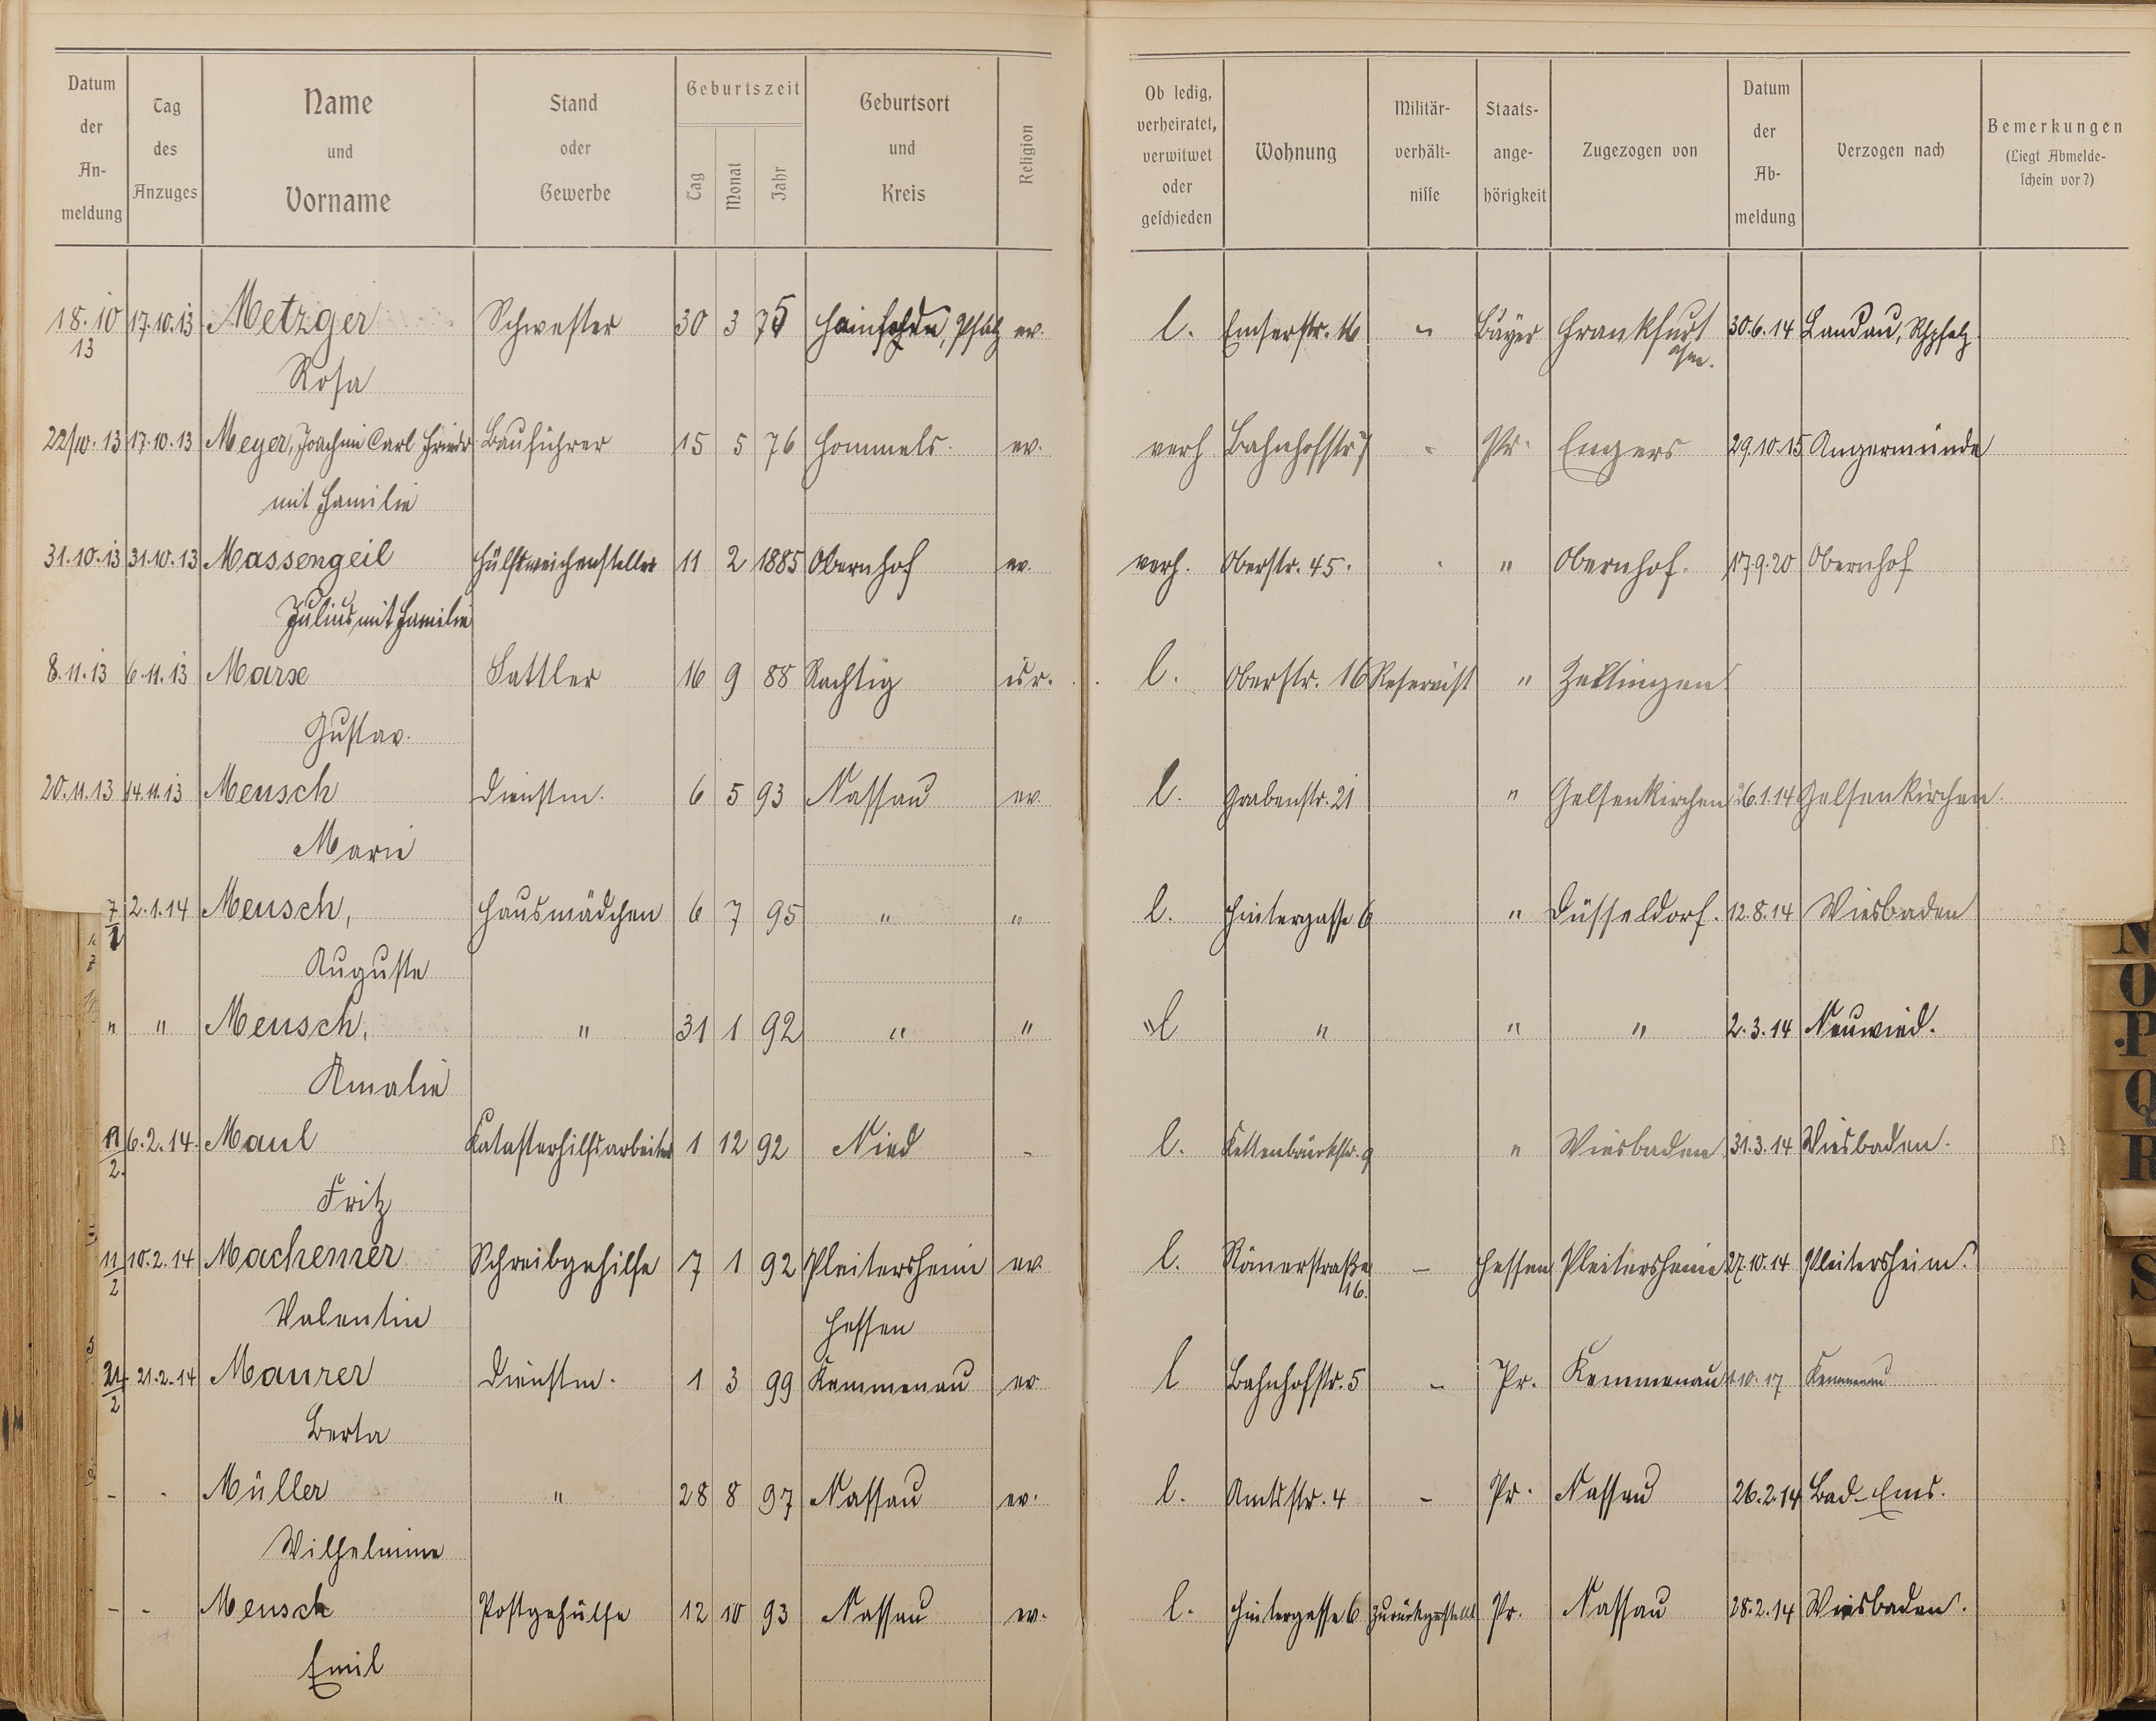 Datum der An-meldung | Tag des Anzuges | Name und Vorname | Stand oder Gewerbe | Geburtszeit Tag Monat Jahr | Geburtsort und Kreis | Religion | Ob ledig, verheiratet, verwitwet oder geschieden | Wohnung | Militär-verhält-nisse | Staats-ange-hörigkeit | Zugezogen von | Datum der Ab-meldung | Verzogen nach | Bemerkungen (Liegt Abmelde-schein vor?)
18.10 17.10.13 Metzger Schwester 30 3 75 Hainfelden, Pfalz ev. l. Emserstr. 16 " Bayer Frankfurt 30.6.14 Landau, Rhpfalz.
13 Rosa a/m.
22/10.13 17.10.13 Meyer, Joachim Carl Friedr Bauführer 15 5 76 Hommels. ev. verh Bahnhofstr 7 " Pr. Engers 29.10.15 Angermünde
mit Familie
31.10.13 31.10.13 Massengeil Hülfsweichensteller 11 2 1885 Obernhof ev. verh. Oberstr. 45. " Obernhof. 17.9.20 Obernhof
Julius, mit Familie
8.11.13 6.11.13 Marx Sattler 16 9 88 Rachtig isr. l. Oberstr. 16 Reservist " Zeltingen
Gustav.
20.11.13 14.11.13 Meusch Dienstm. 6 5 93 Nassau ev. l. Grabenstr. 21 " Gelsenkirchen 26.1.14 Gelsenkirchen.
Marie
7/1 2.1.14 Meusch, Hausmädchen 6 7 95 " " l. Hintergasse 6 " Düsseldorf. 12.8.14 Wiesbaden
Auguste
" " Meusch, " 31 1 92 " " "l " " " 2.3.14 Neuwied.
Amalie
11/2. 6.2.14. Maul Katasterhilfsarbeiter 1 12 92 Nied - l. Kettenbrückstr. 9 " Wiesbaden 31.3.14 Wiesbaden.
Fritz
11/2 10.2.14 Machemer Schreibgehilfe 7 1 92 Pleitersheim ev. l. Römerstraße 16. - Hessen Pleitersheim 27.10.14 Pleitersheim.
Valentin Hessen
21/2 21.2.14 Maurer Dienstm. 1 3 99 Kemmenau ev. l Bahnhofstr. 5 - Pr. Kemmenau 10.17 Kemmenau
Berta
- - Müller " 28 8 97 Nassau ev. l. Amtsstr. 4 - Pr. Nassau 26.2.14 Bad-Ems.
Wilhelmine
- - Meusch Postgehülfe 12 10 93 Nassau ev. l. Hintergasse 6 zurückgestellt Pr. Nassau 28.2.14 Wiesbaden.
Emil
N
O
P
Q
R
S